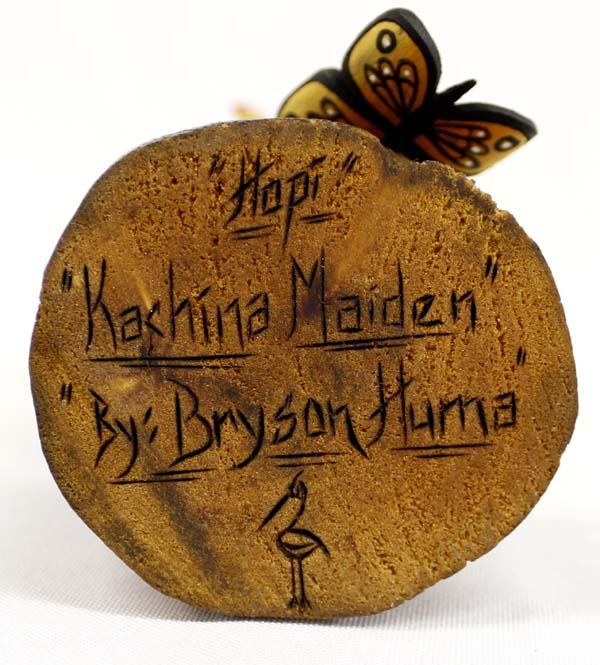 "Hopi"
"Kachina Maiden"
"By: Bryson Huma"